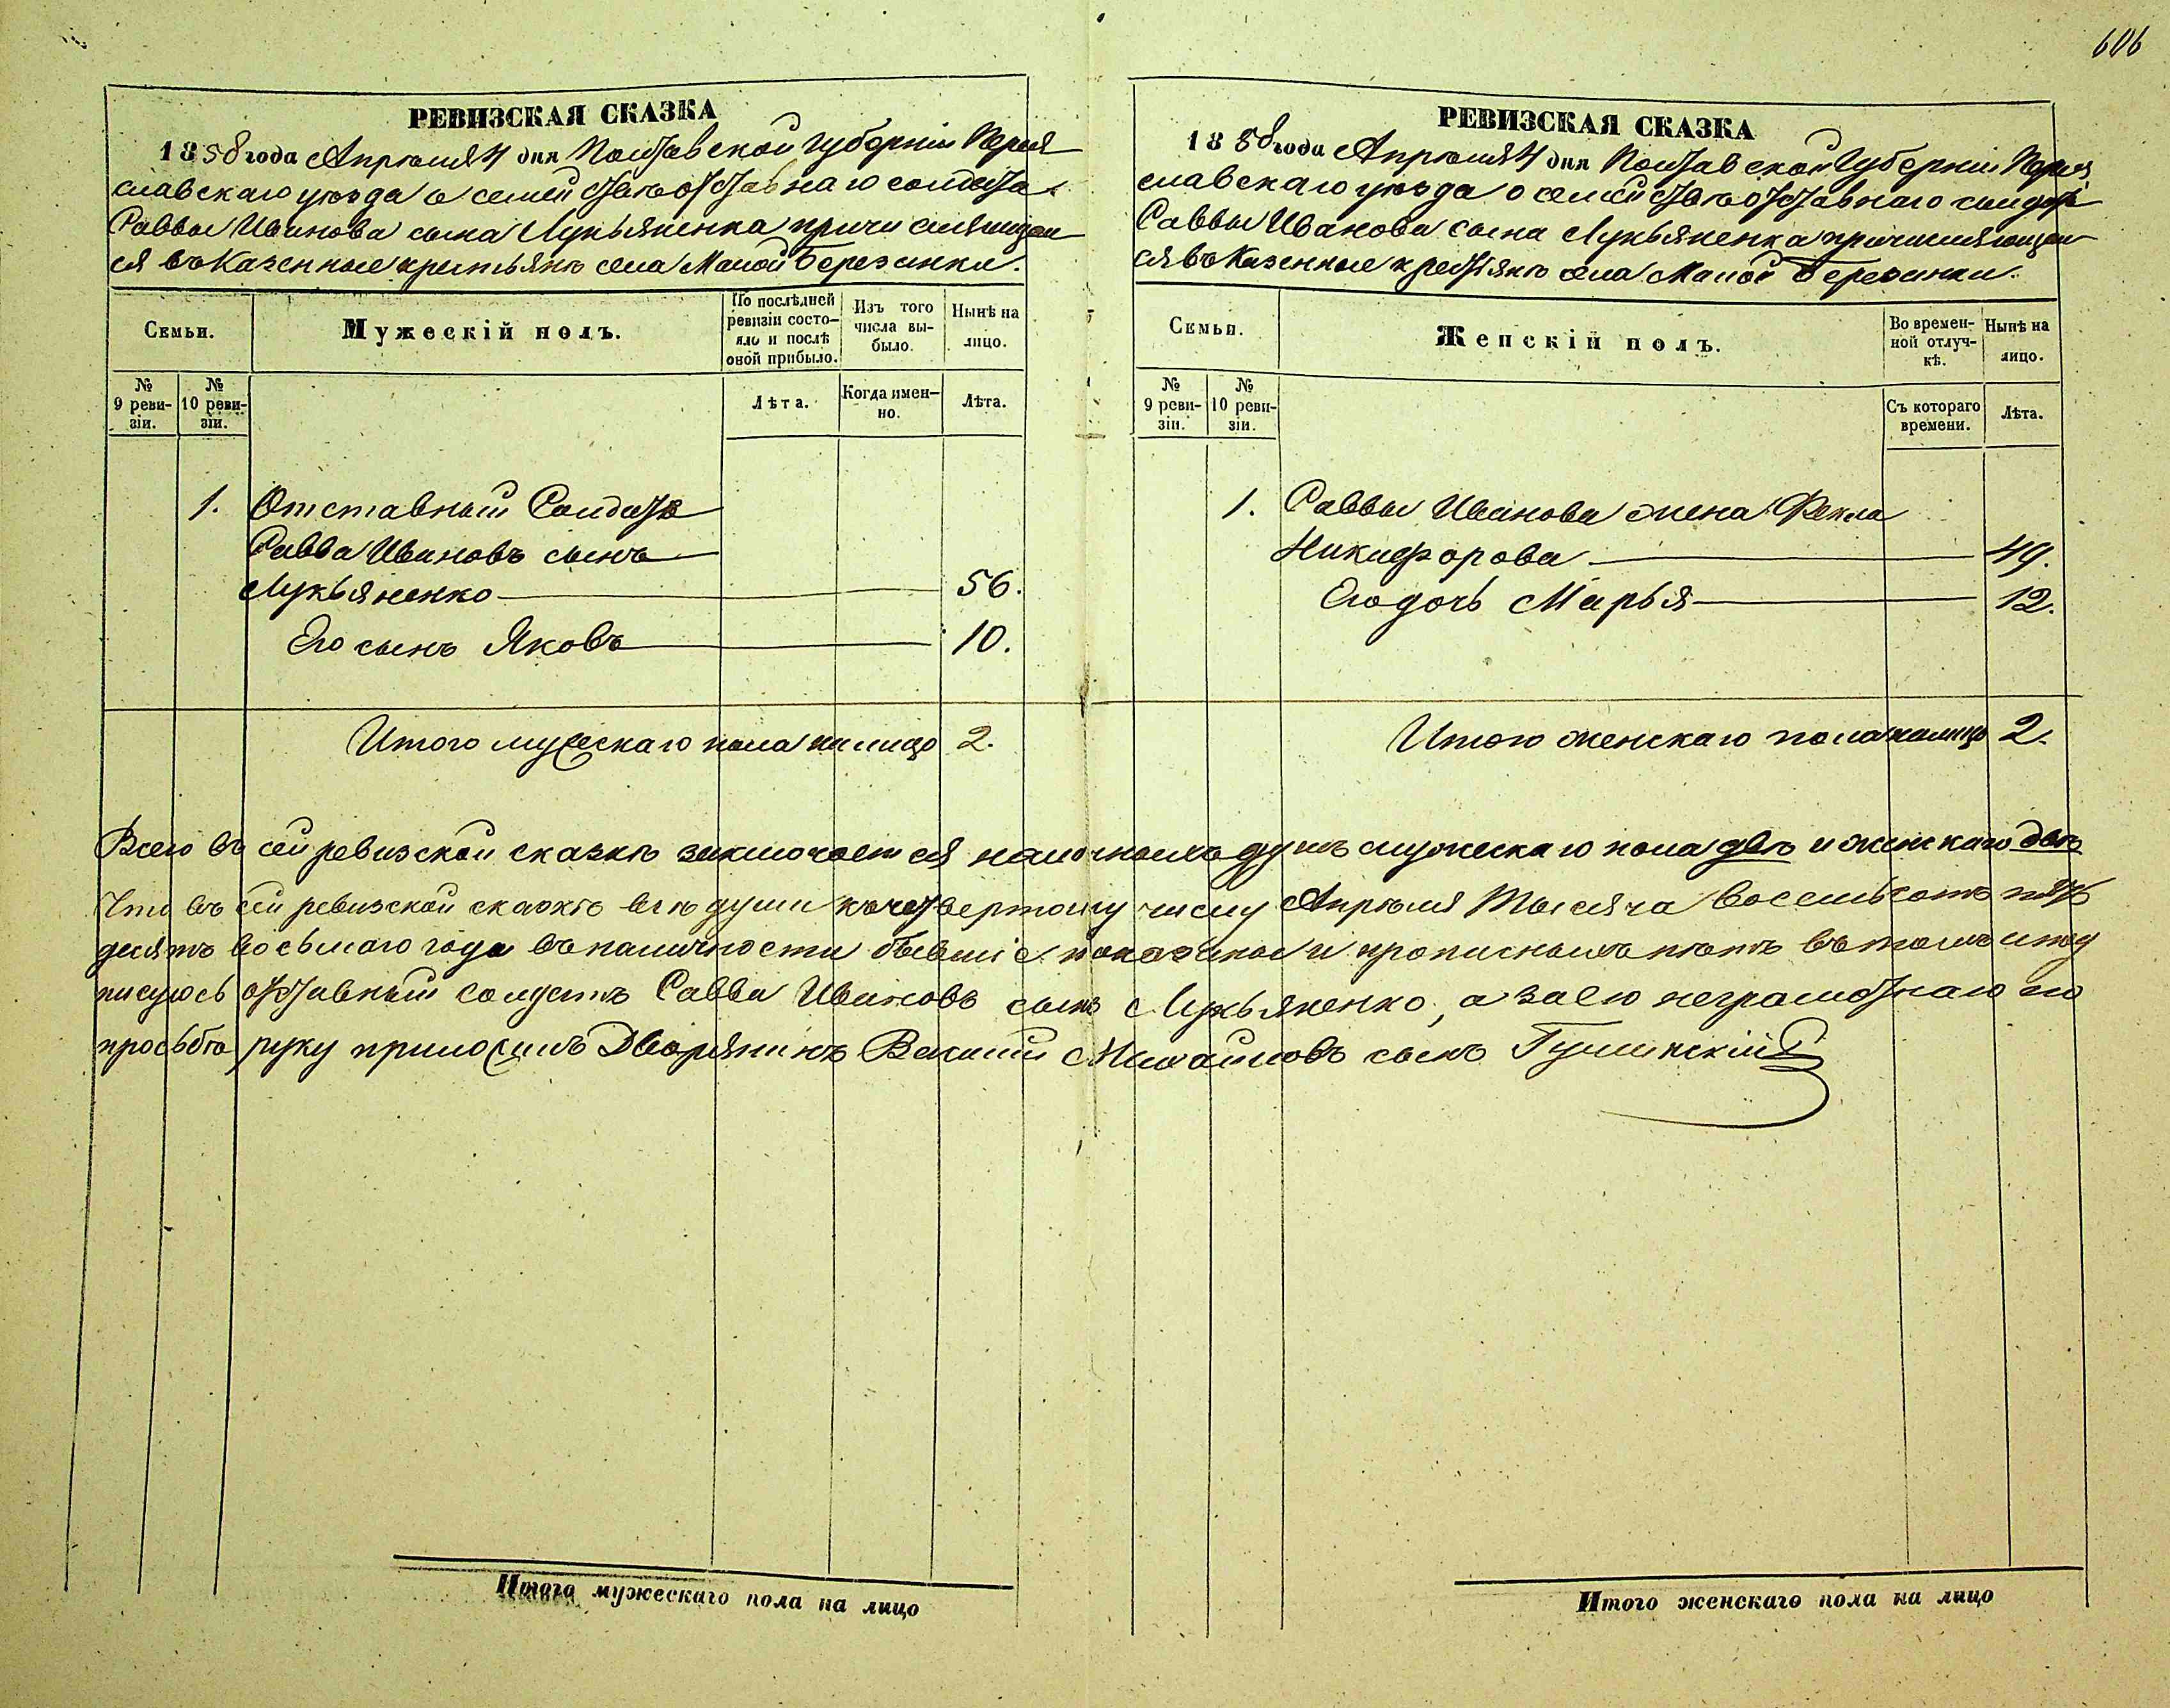 606
РЕВИЗСКАЯ СКАЗКА
1858 года Апрѣля 4 дня Полтавской Губерніи Перея
славскаго уѣзда о семействѣ отставнаго солдата
Саввы Иванова сына Лукьяненка причисляющаго
ся въ Казенные крестьяне села Малой Березанки.
Семьи.
Мужескій полъ.
По послѣдней
ревизіи состо-
яло и послѣ
оной прибыло.
Изъ того
числа вы-
было.
Нынѣ на
лицо.
№
9 реви-
зіи.
№
10 реви-
зіи.
Лѣта.
Когда имен-
но.
Лѣта.
1. Отставный Солдатъ
Савва Ивановъ сынъ
Лукьяненко 56.
Его сынъ Яковъ 10.
Итого мужескаго пола налицо 2.
РЕВИЗСКАЯ СКАЗКА
1858 года Апрѣля 4 дня Полтавской Губерніи Перея
славскаго уѣзда о семействѣ отставнаго солдата
Саввы Иванова сына Лукьяненка причисляющаго
ся въ Казенные крестьяне села Малой Березанки.
Семьи.
Женскій полъ.
Во времен-
ной отлуч-
кѣ.
Нынѣ на
лицо.
№
9 реви-
зіи.
№
10 реви-
зіи.
Съ котораго
времени.
Лѣта.
1. Саввы Иванова жена Фекла
Никифорова 49.
Его дочь Марья 12.
Итого женскаго пола налицо 2.
Всего въ сей ревизской сказкѣ заключается наличныхъ душъ мужескаго пола двѣ и женскаго двѣ
Что въ сей ревизской сказкѣ всѣ души къ четвертому числу Апрѣля Тысяча восемьсотъ пять
десятъ восьмаго года въ наличности бывшіе показаны и прописныхъ нѣтъ въ томъ и под
писуюсь отставный солдатъ Савва Ивановъ сынъ Лукьяненко, а за его неграмотнаго по
просьбѣ руку приложилъ Дворянинъ Василий Михайловъ сынъ
Итого мужескаго пола на лицо
Итого женскаго пола на лицо